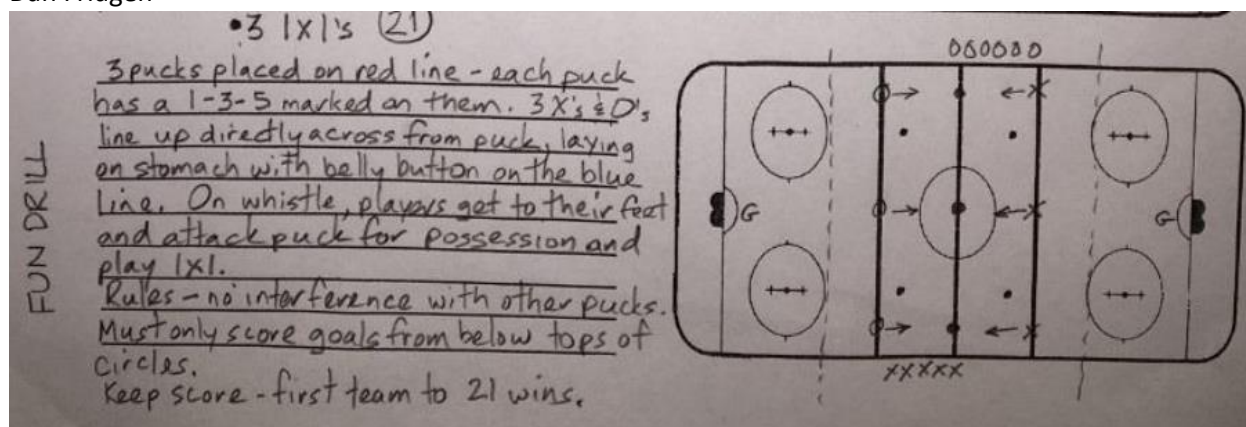 •3 1x1's (21)
3 pucks placed on red line - each puck
has a 1-3-5 marked on them. 3 X's & O's
line up directly across from puck, laying
on stomach with belly button on the blue
line. On whistle, players get to their feet
and attack puck for possession and
play 1x1.
Rules - no interference with other pucks.
Must only score goals from below tops of
circles.
Keep score - first team to 21 wins.
FUN DRILL
OOOOOO
X X
G G
X
X
XXXXX